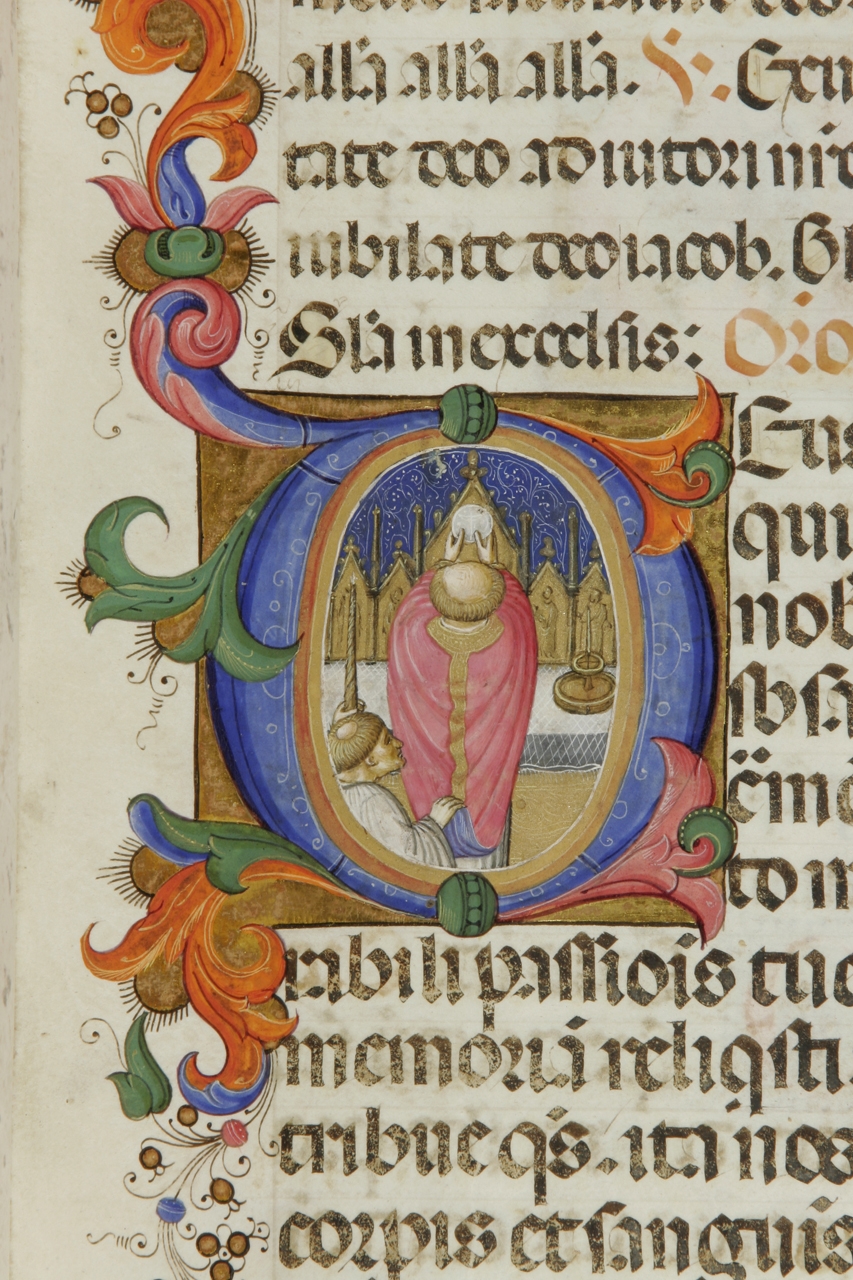 allã allã allã. V. Exu
tate deo adiutori nr̃o
iubilate deo iacob. Gl
Glã in excelsis: Oro
D Eus
qui
nob
sb sa
c̃m
to m
rabili passiois tue
memoriã reliqsti.
tribue qs̃. ita nos
corpis et sanguis